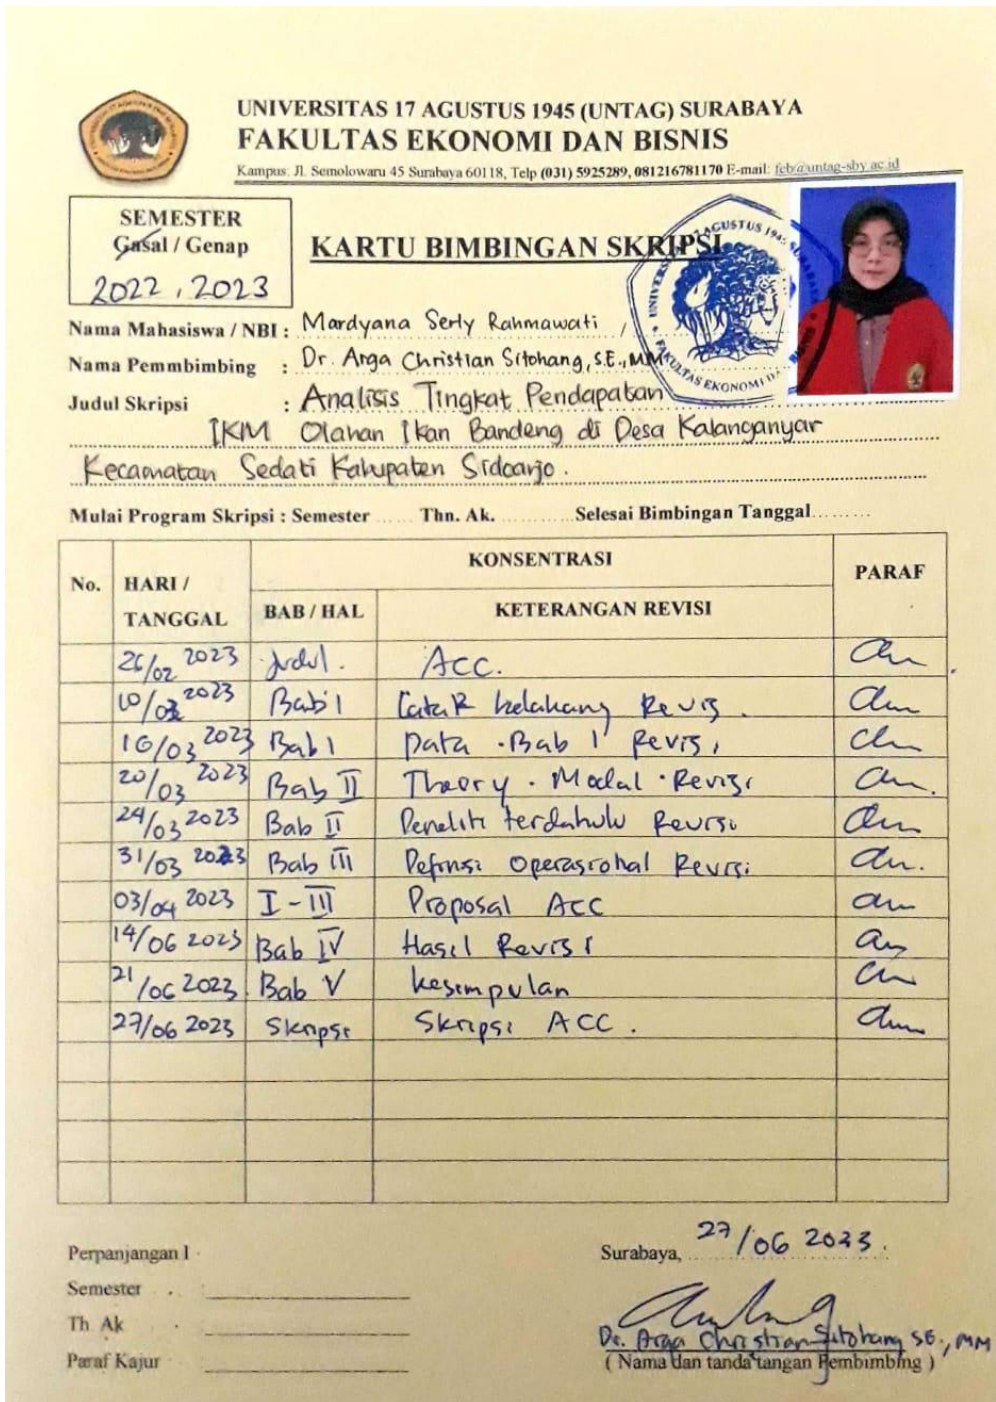 UNIVERSITAS 17 AGUSTUS 1945 (UNTAG) SURABAYA
FAKULTAS EKONOMI DAN BISNIS
Kampus: Jl. Semolowaru 45 Surabaya 60118, Telp (031) 5925289, 081216781170 E-mail: feb@untag-sby.ac.id
SEMESTER
Gasal / Genap
2022, 2023
KARTU BIMBINGAN SKRIPSI
Nama Mahasiswa / NBI : Mardyana Serly Rahmawati /
Nama Pemmbimbing : Dr. Arga Christian Sitohang, S.E., MM
Judul Skripsi : Analisis Tingkat Pendapatan
IKM Olahan Ikan Bandeng di Desa Kalanganyar
Kecamatan Sedati Kabupaten Sidoarjo.
Mulai Program Skripsi : Semester ...... Thn. Ak. ............ Selesai Bimbingan Tanggal.........
No. HARI / TANGGAL KONSENTRASI PARAF
BAB / HAL KETERANGAN REVISI
26/02 2023 Judul. ACC.
10/03 2023 Bab 1 Latar belakang Revisi.
16/03 2023 Bab 1 Data . Bab 1 Revisi
20/03 2023 Bab II Theory . Modal . Revisi
24/03 2023 Bab II Peneliti terdahulu Revisi
31/03 2023 Bab III Definsi Operasiohal Revisi
03/04 2023 I - III Proposal ACC
14/06 2023 Bab IV Hasil Revisi
21/06 2023 Bab V kesimpulan
27/06 2023 Skripsi Skripsi ACC.
Perpanjangan I
Semester
Th Ak
Paraf Kajur
Surabaya, 27/06 2023.
Dr. Arga Christian Sitohang SE., MM
( Nama dan tanda tangan Pembimbing )